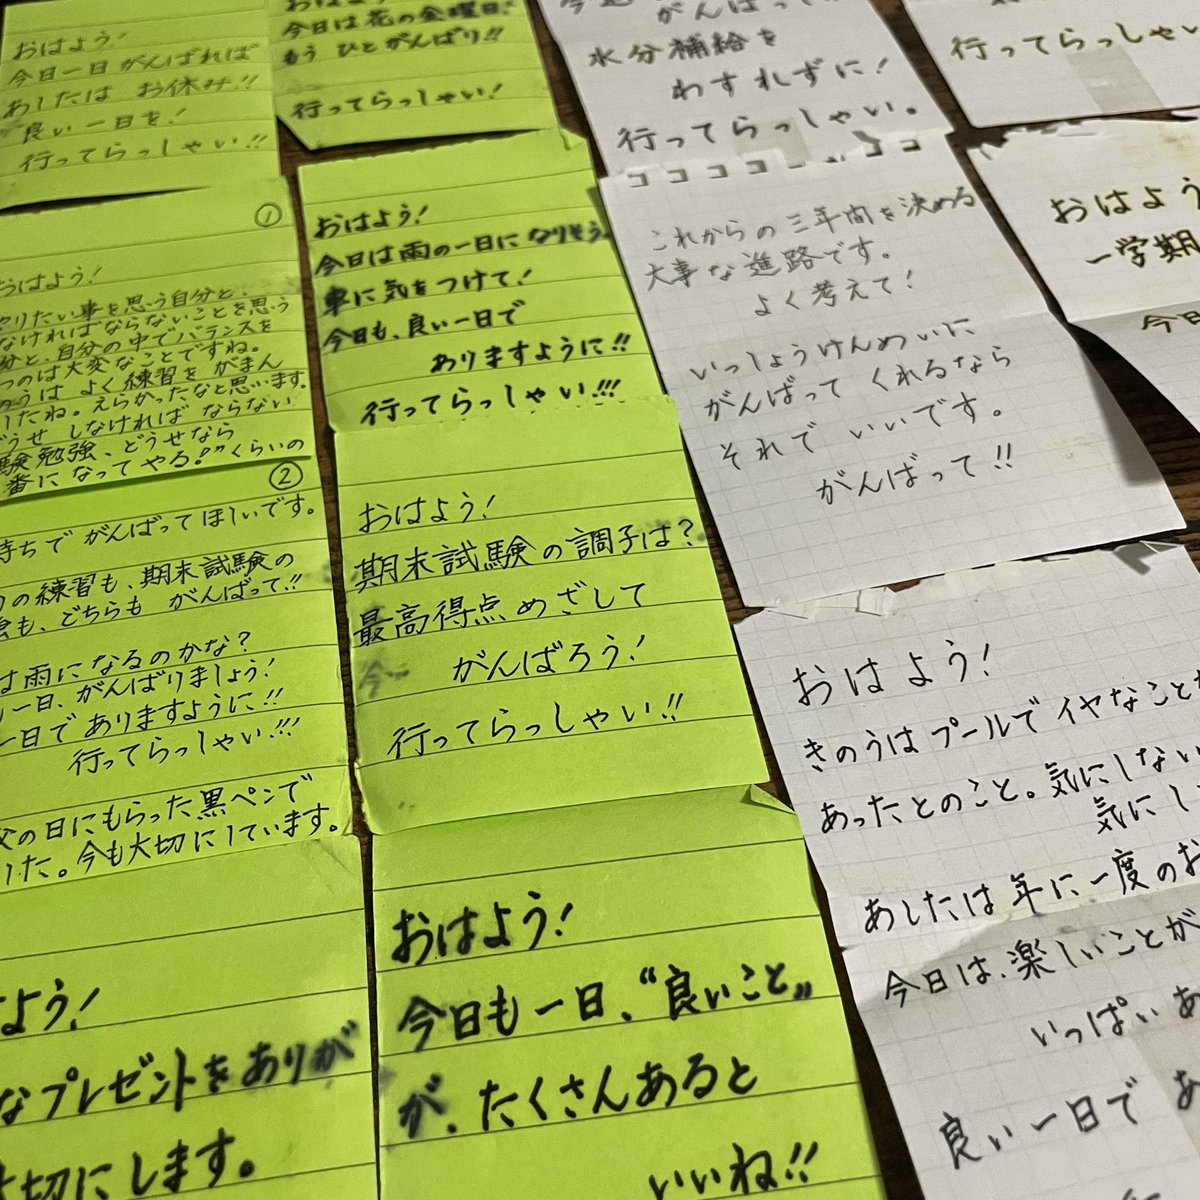 おはよう!
今日一日がんばれば
あしたは お休み!!
良い一日を!
行ってらっしゃい!!
今日は花の金曜日!
もう ひとがんばり!!
行ってらっしゃい!
がんばって
水分補給を
わすれずに!
行ってらっしゃい。
行ってらっしゃい
①
おはよう!
やりたい事を思う自分と、
なければならないことを思う
分と、自分の中でバランスを
つのは大変なことですね。
のうは よく練習を がまん
したね。えらかったなと思います。
どうせ しなければ ならない
験勉強、どうせなら
番になってやる!”くらいの
②
持ちで がんばって ほしいです。
の練習も、期末試験の
も、どちらも がんばって!!
は雨になるのかな?
一日、がんばりましょう!
一日でありますように!!
行ってらっしゃい!!!
父の日にもらった黒ペンで
した。今も大切にしています。
おはよう!
今日は雨の一日に なりそう。
車に気をつけて!
今日も、良い一日で
ありますように!!
行ってらっしゃい!!!
おはよう!
期末試験の調子は?
最高得点めざして
がんばろう!
行ってらっしゃい!!
これからの三年間を決める
大事な進路です。
よく考えて!
いっしょうけんめいに
がんばって くれるなら
それで いいです。
がんばって!!
おはよう
一学期
今日
おはよう!
きのうはプールでイヤなことが
あったとのこと。気にしない
気にし
あしたは年に一度のお
今日は、楽しいことが
いっぱいあ
良い一日で あ
はよう!
なプレゼントをありが
大切にします。
おはよう!
今日も一日、“良いこと”
が、たくさんあると
いいね!!